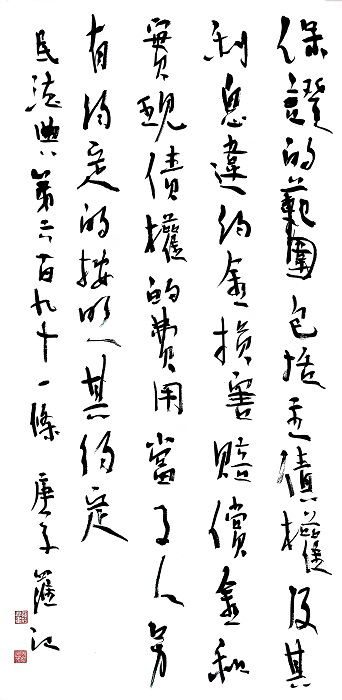 保證的範圍包括主債權及其
利息違約金損害賠償金和
實現債權的費用當事人另
有約定的按照其約定
民法典第六百九十一條 庚子 江